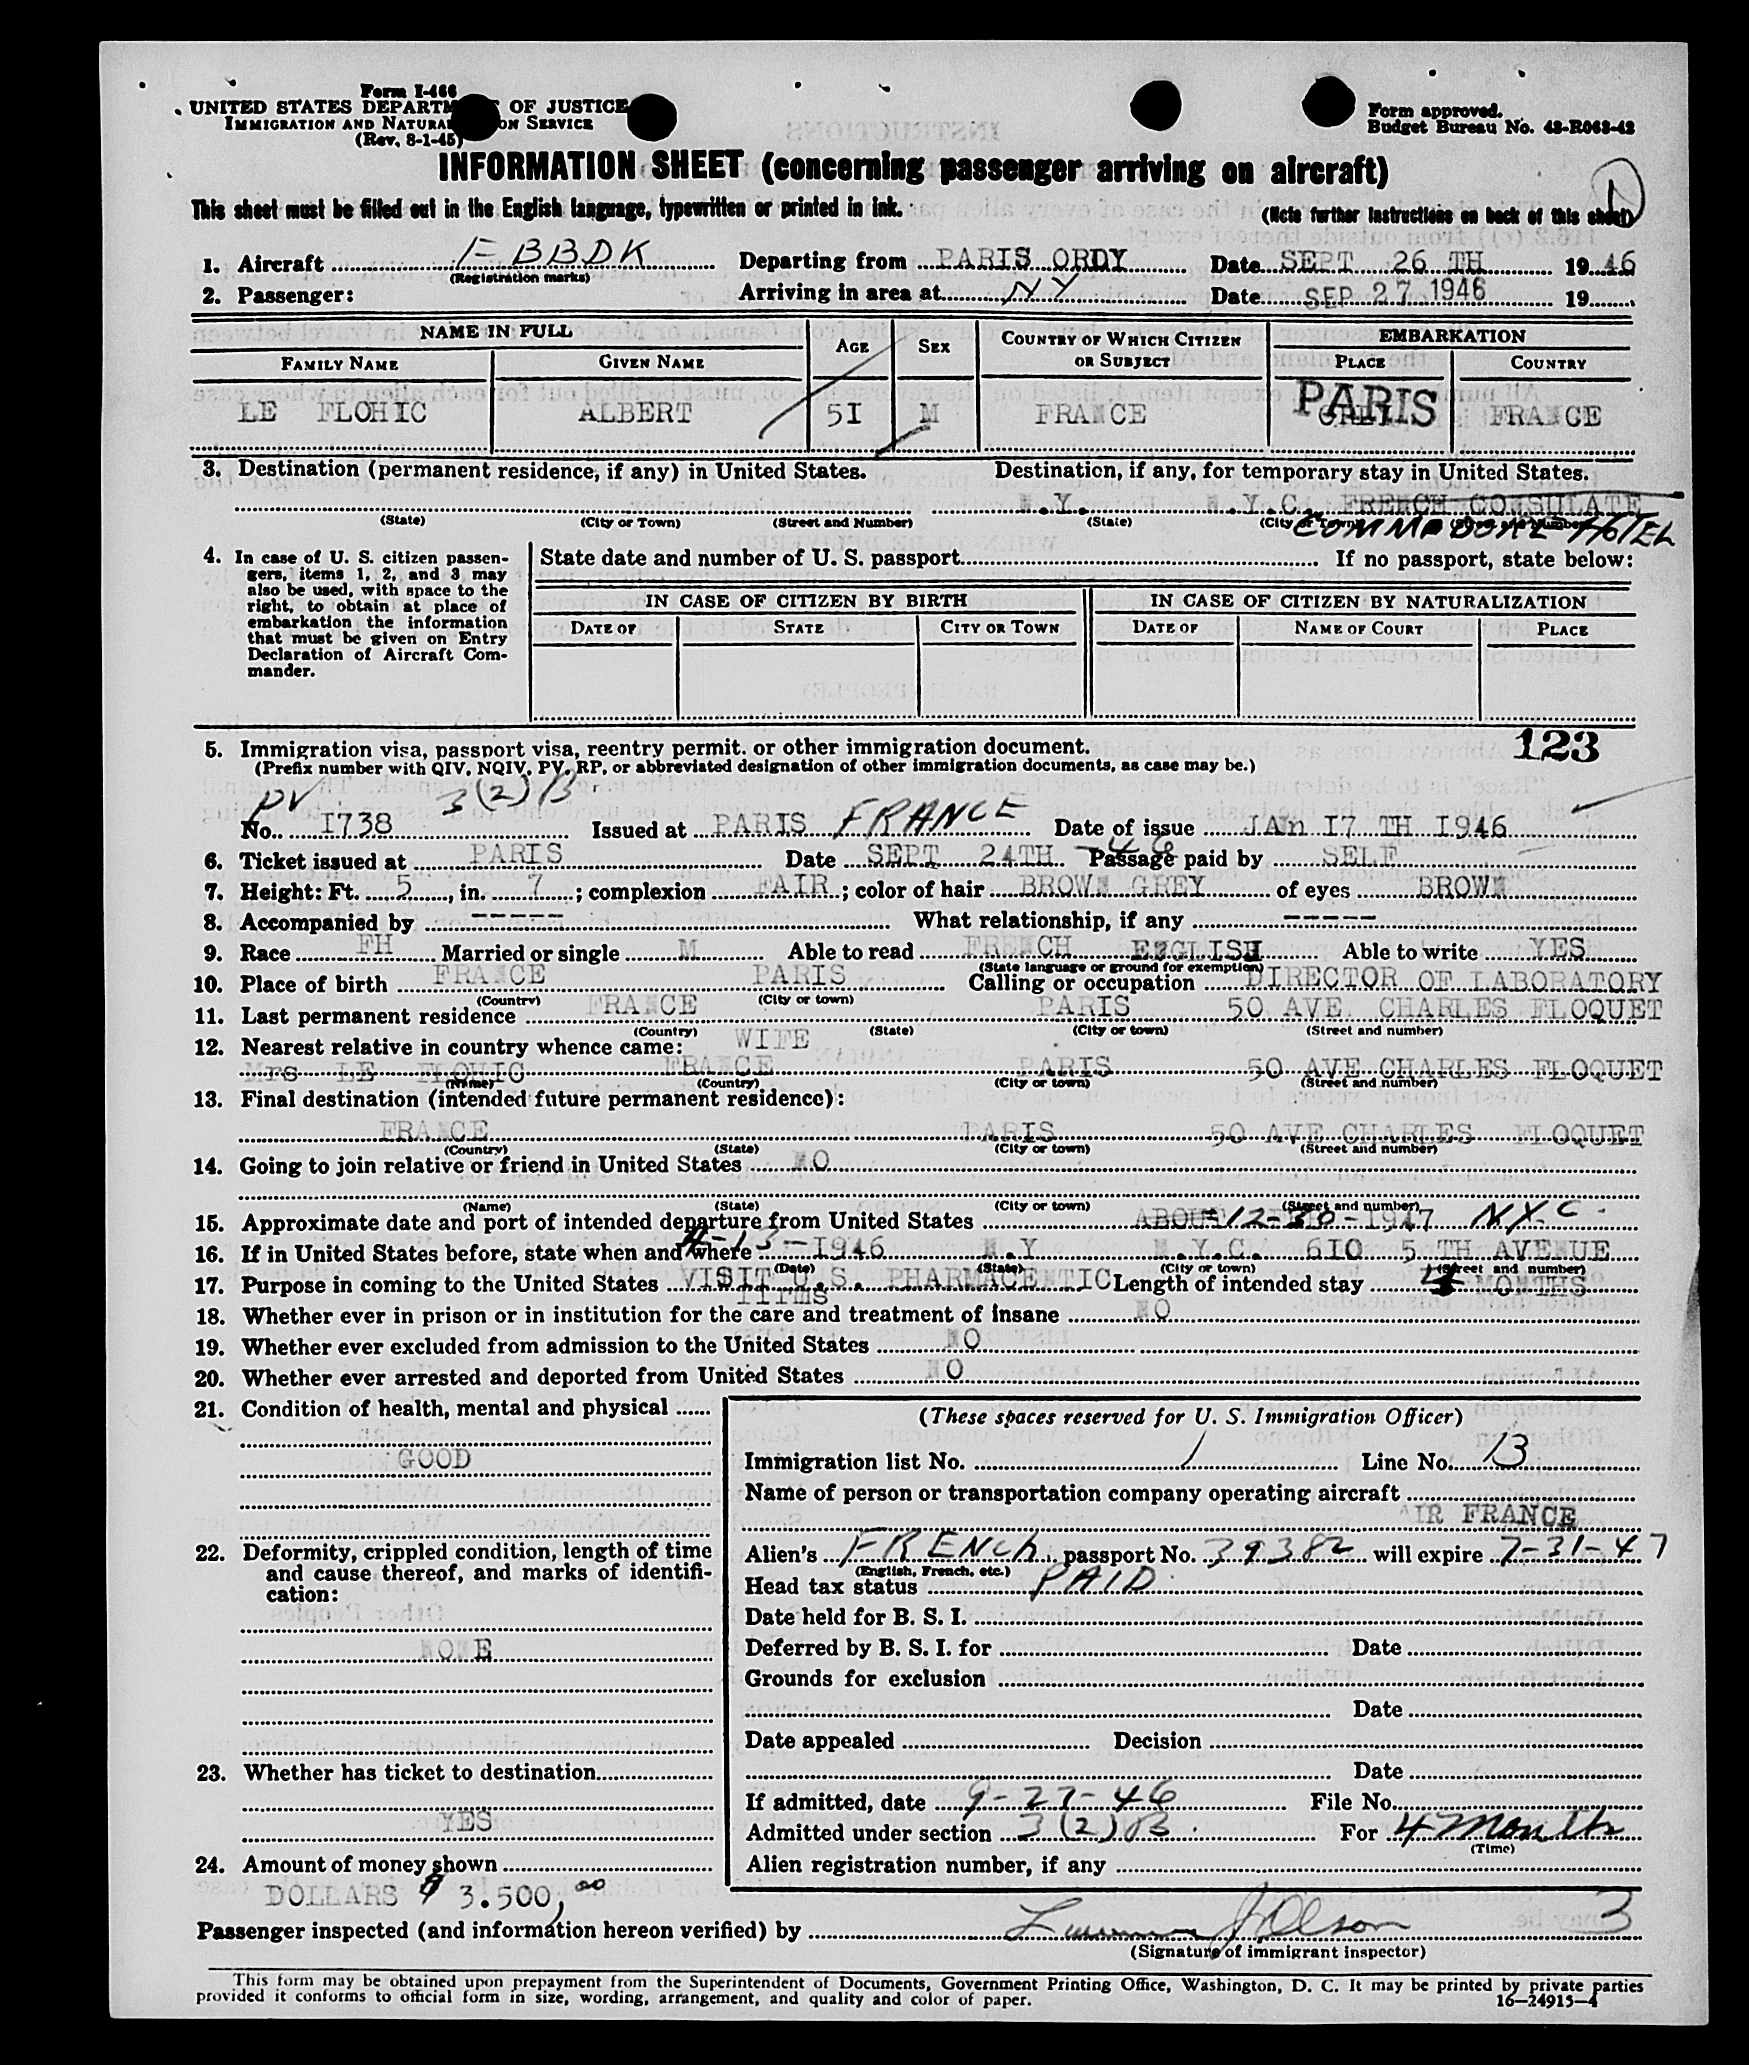 Form I-466
UNITED STATES DEPARTMENT OF JUSTICE
IMMIGRATION AND NATURALIZATION SERVICE
(Rev. 8-1-45)
Form approved.
Budget Bureau No. 43-R063-42
INFORMATION SHEET (concerning passenger arriving on aircraft)
This sheet must be filled out in the English language, typewritten or printed in ink.
(Note further instructions on back of this sheet)
1. Aircraft F BBDK Departing from PARIS ORDY Date SEPT 26 TH 19 46
(Registration marks)
2. Passenger: Arriving in area at NY Date SEP 27 1946 19
NAME IN FULL AGE SEX COUNTRY OF WHICH CITIZEN OR SUBJECT EMBARKATION
FAMILY NAME GIVEN NAME PLACE COUNTRY
LE FLOHIC ALBERT 5I M FRANCE PARIS FRANCE
3. Destination (permanent residence, if any) in United States. Destination, if any, for temporary stay in United States.
N.Y. N.Y.C. FRENCH CONSULATE
(State) (City or Town) (Street and Number) (State) (City or Town) (Street and Number)
COMMODORE HOTEL
4. In case of U. S. citizen passengers, items 1, 2, and 3 may also be used, with space to the right, to obtain at place of embarkation the information that must be given on Entry Declaration of Aircraft Commander.
State date and number of U. S. passport If no passport, state below:
IN CASE OF CITIZEN BY BIRTH IN CASE OF CITIZEN BY NATURALIZATION
DATE OF STATE CITY OR TOWN DATE OF NAME OF COURT PLACE
123
5. Immigration visa, passport visa, reentry permit, or other immigration document.
(Prefix number with QIV, NQIV, PV, RP, or abbreviated designation of other immigration documents, as case may be.)
PV 3(2)B
No. I738 Issued at PARIS FRANCE Date of issue JAn I7 TH I946
6. Ticket issued at PARIS Date SEPT 24TH -46 Passage paid by SELF
7. Height: Ft. 5, in. 7; complexion FAIR; color of hair BROWN GREY of eyes BROWN
8. Accompanied by ----- What relationship, if any -----
9. Race FH Married or single M Able to read FRENCH ENGLISH Able to write YES
(State language or ground for exemption)
10. Place of birth FRANCE PARIS Calling or occupation DIRECTOR OF LABORATORY
(Country) (City or town)
11. Last permanent residence FRANCE PARIS 50 AVE CHARLES FLOQUET
(Country) (State) (City or town) (Street and number)
12. Nearest relative in country whence came: WIFE
Mrs LE FLOHIC FRANCE PARIS 50 AVE CHARLES FLOQUET
(Name) (Country) (City or town) (Street and number)
13. Final destination (intended future permanent residence):
FRANCE PARIS 50 AVE CHARLES FLOQUET
(Country) (State) (City or town) (Street and number)
14. Going to join relative or friend in United States NO
(Name) (State) (City or town) (Street and number)
15. Approximate date and port of intended departure from United States ABOUT 12-30-1947 N.Y.C.
16. If in United States before, state when and where 4-13-I946 N.Y N.Y.C. 6I0 5 TH AVENUE
(Date) (State) (City or town) (Street and number)
17. Purpose in coming to the United States VISIT U.S. PHARMACENTIC Length of intended stay 4 MONTHS
firms
18. Whether ever in prison or in institution for the care and treatment of insane NO
19. Whether ever excluded from admission to the United States NO
20. Whether ever arrested and deported from United States NO
21. Condition of health, mental and physical
GOOD
22. Deformity, crippled condition, length of time and cause thereof, and marks of identification:
NONE
23. Whether has ticket to destination
YES
24. Amount of money shown
DOLLARS $ 3.500,00
(These spaces reserved for U. S. Immigration Officer)
Immigration list No. 1 Line No. 13
Name of person or transportation company operating aircraft
AIR FRANCE
Alien's FRENCH passport No. 39382 will expire 7-31-47
(English, French, etc.)
Head tax status PAID
Date held for B. S. I.
Deferred by B. S. I. for Date
Grounds for exclusion
Date
Date appealed Decision
Date
If admitted, date 9-27-46 File No.
Admitted under section 3(2)B For 4 Months
(Time)
Alien registration number, if any
3
Passenger inspected (and information hereon verified) by Lawrence J Olson
(Signature of immigrant inspector)
This form may be obtained upon prepayment from the Superintendent of Documents, Government Printing Office, Washington, D. C. It may be printed by private parties
provided it conforms to official form in size, wording, arrangement, and quality and color of paper.
16—24915-4